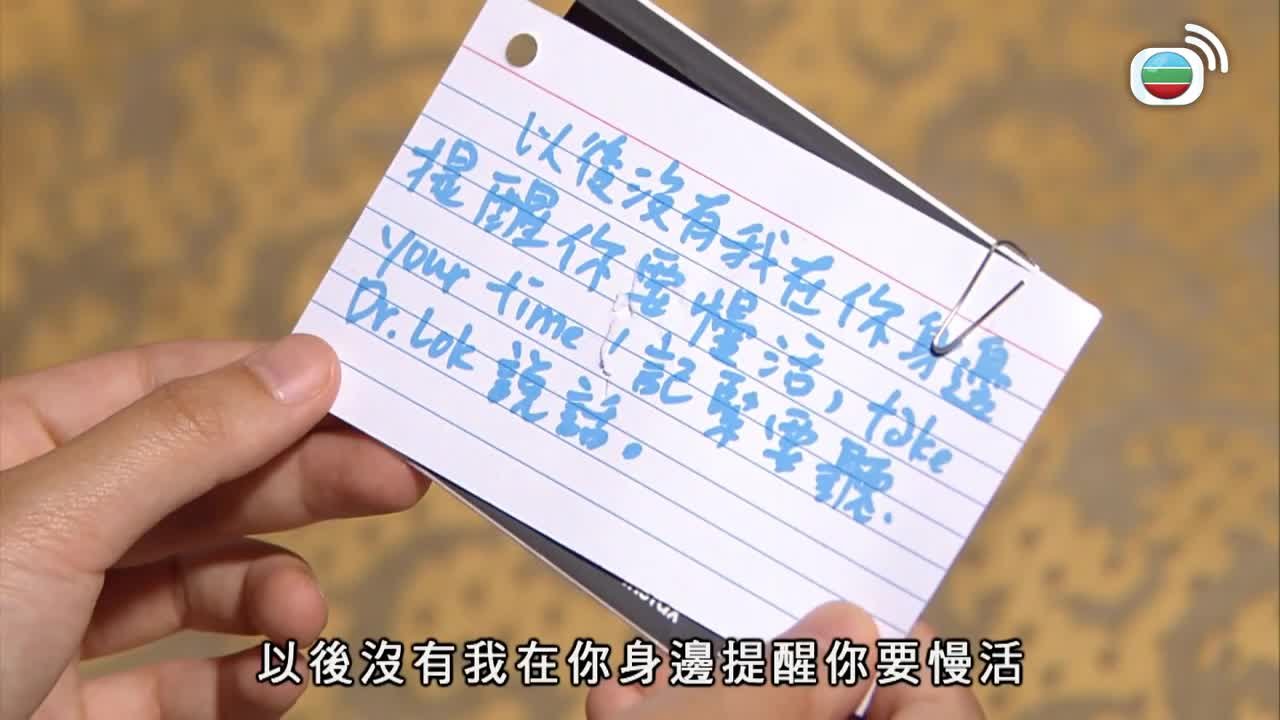 以後沒有我在你身邊
提醒你要慢活, take
your time! 記緊要聽.
Dr. Lok 說話.
instax
以後沒有我在你身邊提醒你要慢活